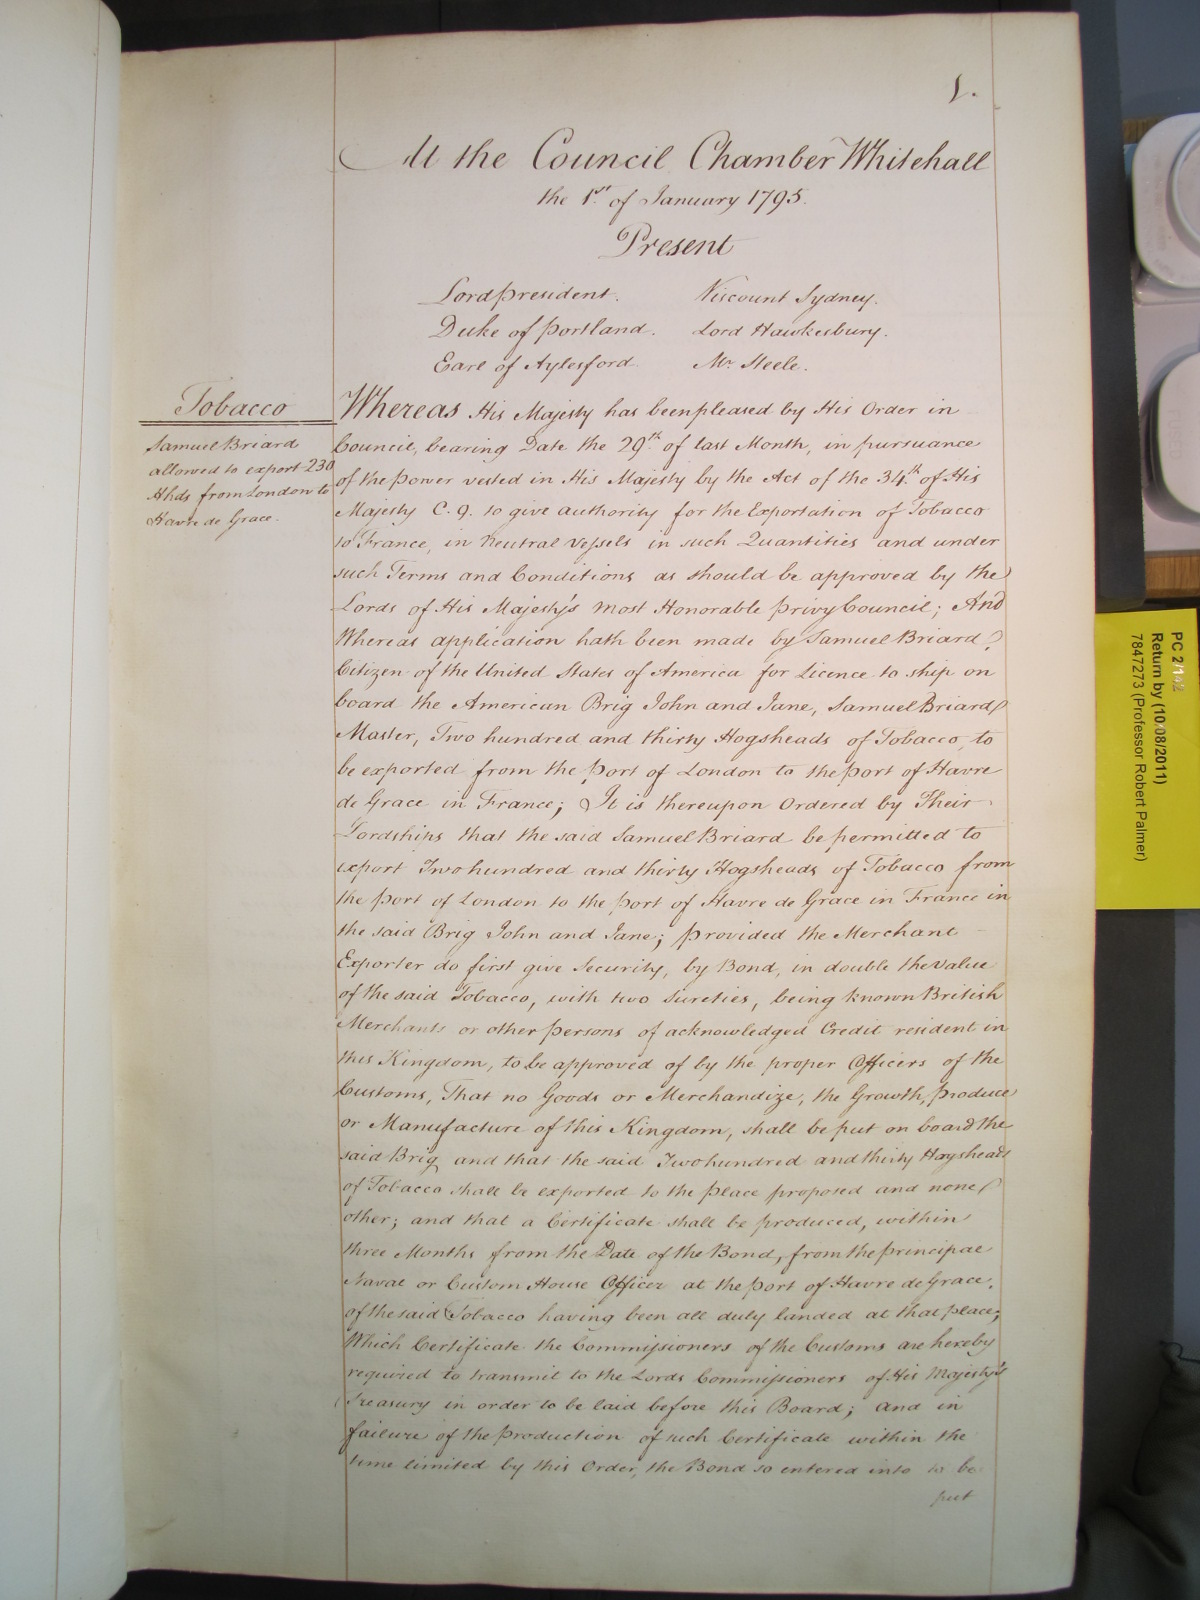 1.
At the Council Chamber Whitehall
the 1st of January 1795.
Present
Lord President. Viscount Sydney.
Duke of Portland. Lord Hawkesbury.
Earl of Aylesford Mr. Steele.
Tobacco
Samuel Briard
allowed to export 230
Hhds from London to
Havre de Grace.
Whereas His Majesty has been pleased by His Order in
Council, bearing Date the 29th of last Month, in pursuance
of the Power vested in His Majesty by the Act of the 34th of His
Majesty C. 9. to give authority for the Exportation of Tobacco
to France, in Neutral Vessels in such Quantities and under
such Terms and Conditions as should be approved by the
Lords of His Majesty's most Honorable Privy Council; And
Whereas application hath been made by Samuel Briard
Citizen of the United States of America for Licence to ship on
board the American Brig John and Jane, Samuel Briard
Master, Two hundred and thirty Hogsheads of Tobacco, to
be exported from the Port of London to the Port of Havre
de Grace in France; It is thereupon Ordered by Their
Lordships that the said Samuel Briard be permitted to
export Two hundred and thirty Hogsheads of Tobacco from
the Port of London to the Port of Havre de Grace in France in
the said Brig John and Jane; provided the Merchant
Exporter do first give Security, by Bond, in double the Value
of the said Tobacco, with two Sureties, being known British
Merchants or other Persons of acknowledged Credit resident in
this Kingdom, to be approved of by the proper Officers of the
Customs, That no Goods or Merchandize, the Growth, Produce
or Manufacture of this Kingdom, shall be put on board the
said Brig and that the said Two hundred and thirty Hogsheads
of Tobacco shall be exported to the Place proposed and none
other; and that a Certificate shall be produced, within
three Months from the Date of the Bond, from the principal
Naval or Custom House Officer at the Port of Havre de Grace,
of the said Tobacco having been all duly landed at that place;
Which Certificate the Commissioners of the Customs are hereby
required to transmit to the Lords Commissioners of His Majesty's
Treasury in order to be laid before this Board; and in
failure of the Production of such Certificate within the
time limited by this Order, the Bond so entered into to be
put
PC 2/142
Return by (10/08/2011)
7847273 (Professor Robert Palmer)